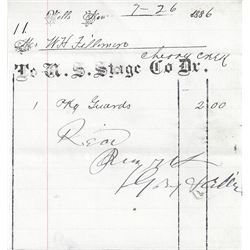 Wells Nev 7-26 1886
11
Mr. W H Fillmore
Cherry Creek
To U. S. Stage Co Dr.
1 Pkg Guards 2.00
Rec'd
Payment